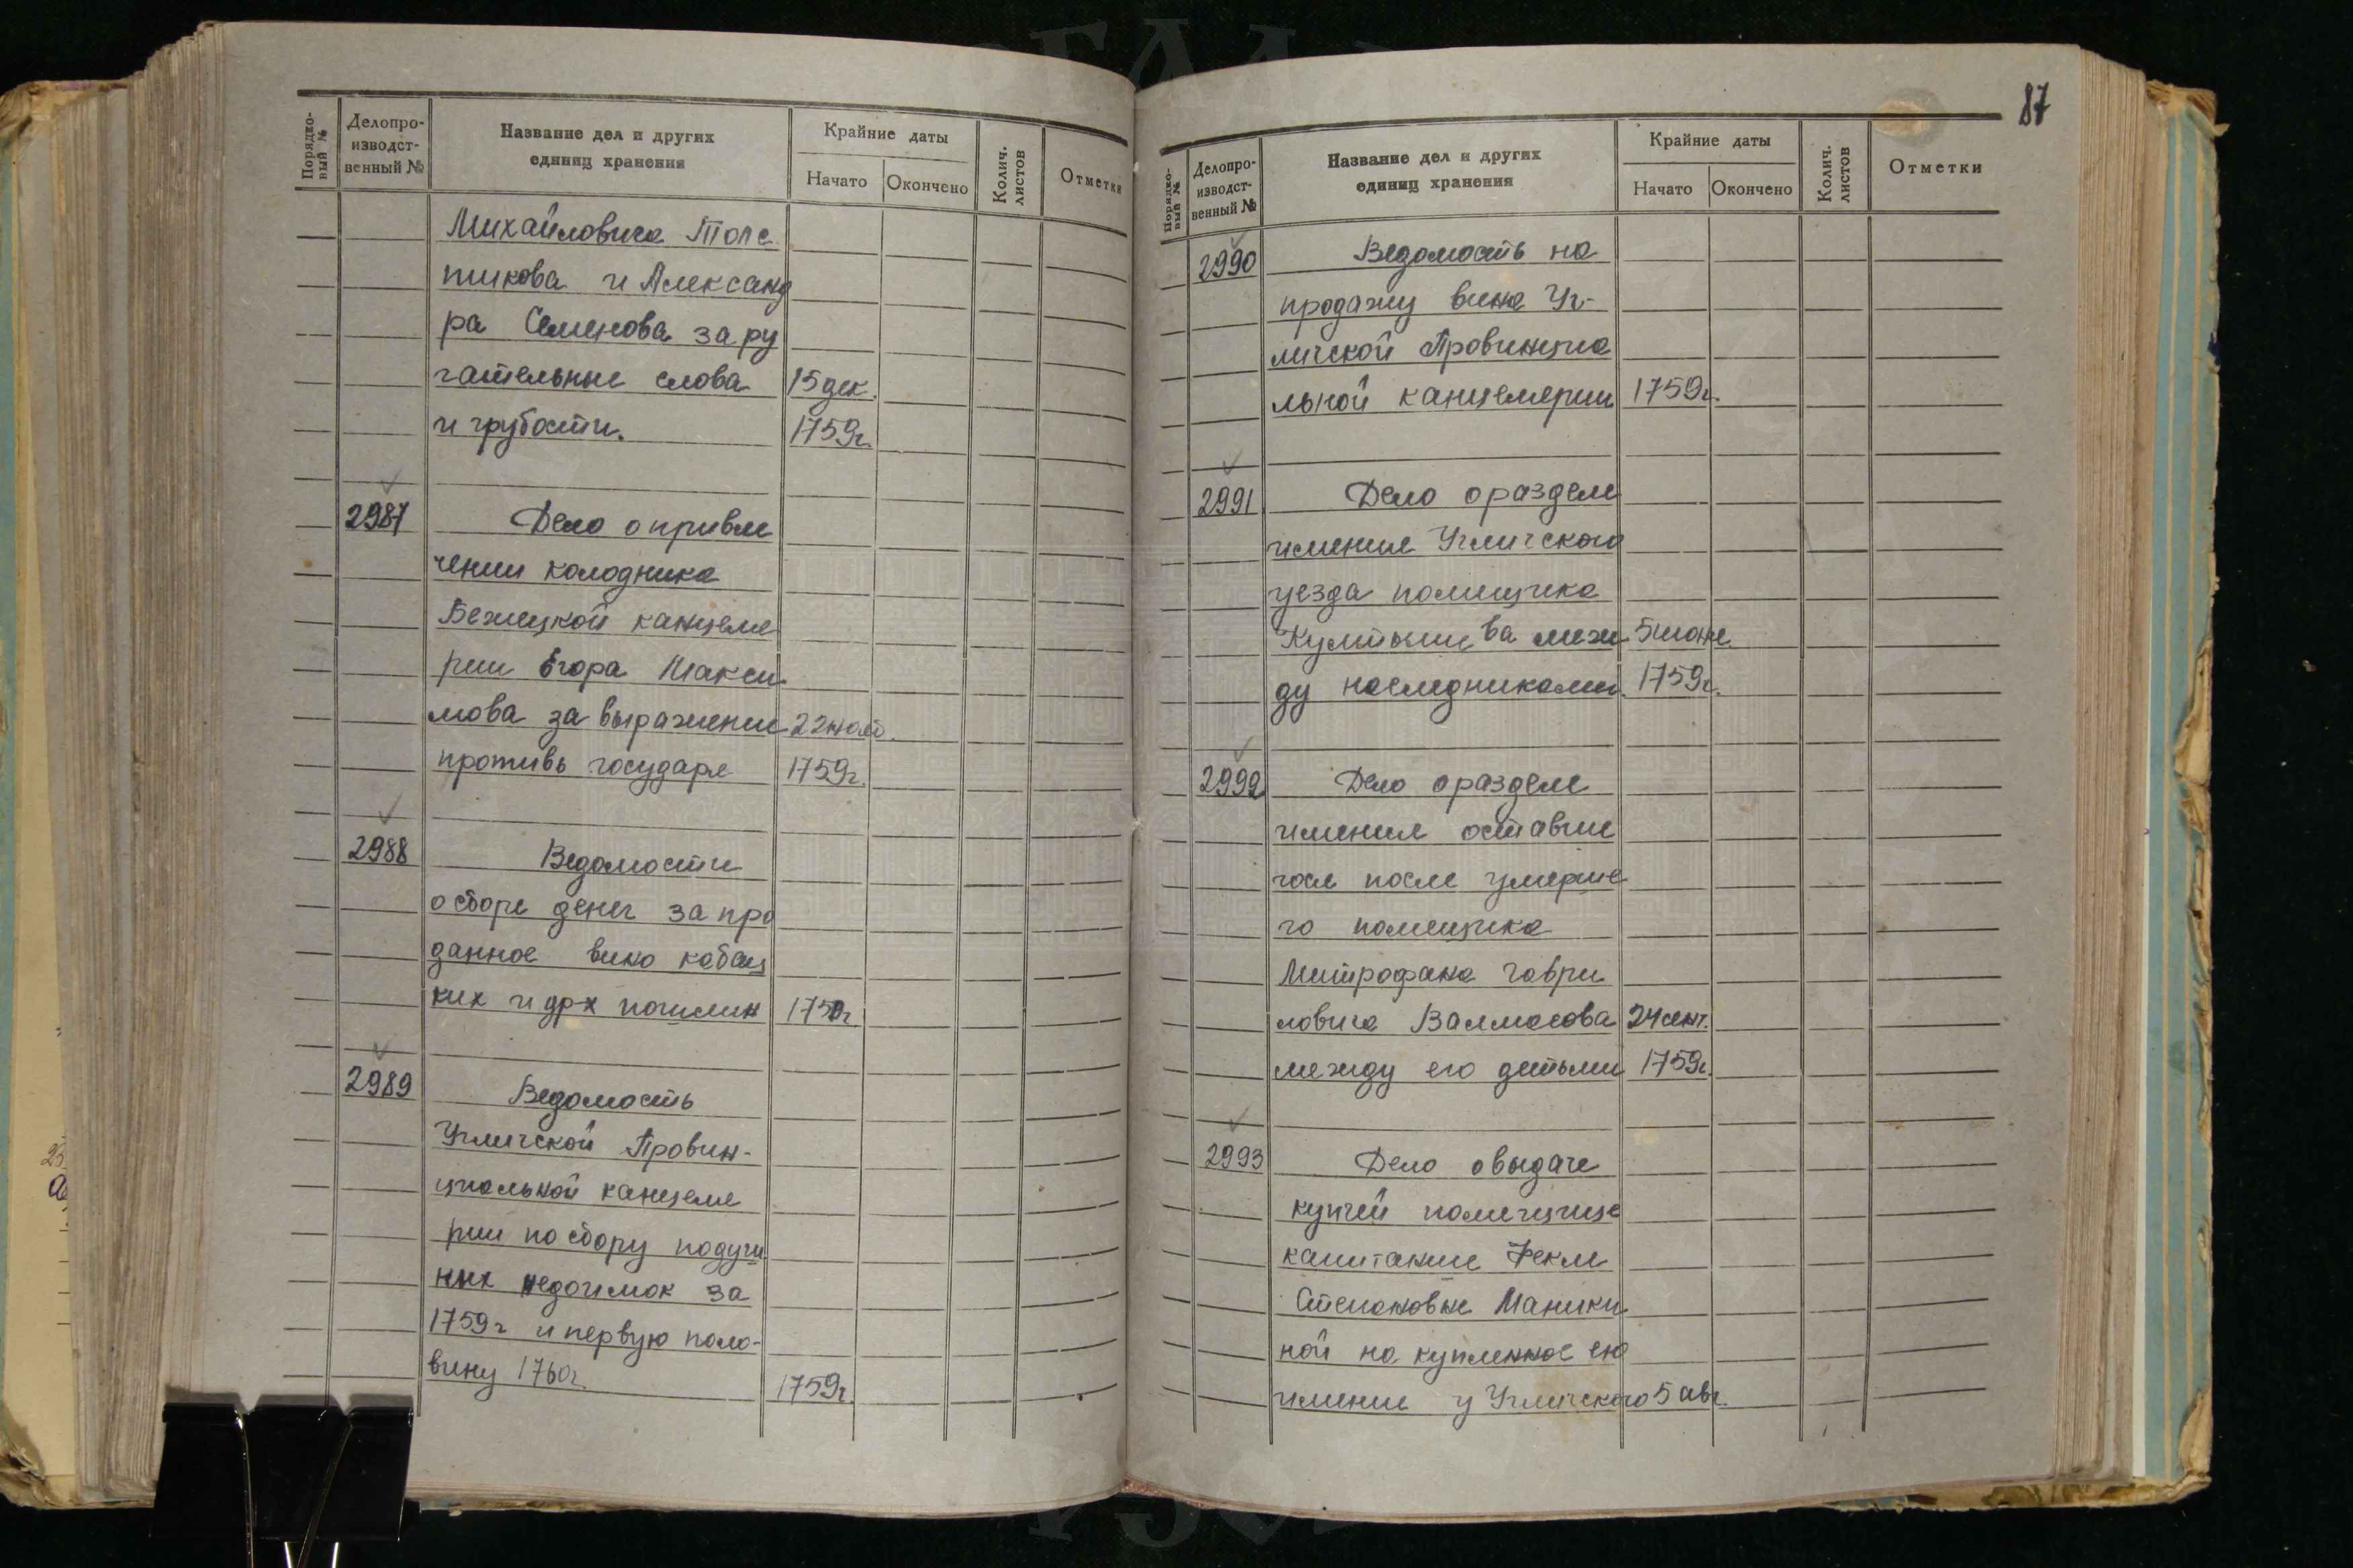 Порядко-
вый №
Делопро-
изводст-
венный №
Название дел и других
единиц хранения
Крайние даты
Начато
Окончено
Колич.
листов
Отметки
Михайловича Толс
тикова и Александ
ра Семенова за ру
гательные слова 15 дек.
и грубости. 1759г.
2987 Дело о привле
чении колодника
Бежецкой канцеля
рии Егора Макси
мова за выражение 22 нояб.
противъ государя 1759г.
2988 Ведомости
о сборе денег за про
данное вино кабац
ких и др-х пошлин 1759г.
2989 Ведомость
Угличской Провин-
циальной канцеля
рии по сбору подуш
ных недоимок за
1759г и первую поло-
вину 1760г. 1759г.
87
Порядко-
вый №
Делопро-
изводст-
венный №
Название дел и других
единиц хранения
Крайние даты
Начато
Окончено
Колич.
листов
Отметки
2990 Ведомость на
продажу вина Уг-
личской Провинциа
льной канцелярии 1759г.
2991 Дело о разделе
имения Угличского
уезда помещика
меж 5 июня
ду наследниками. 1759г.
2992 Дело о разделе
имения оставше
гося после умерше
го помещика
Митрофана Гаври
ловича Валмасова 24 сент.
между его детьми 1759г.
2993 Дело о выдаче
купчей помещице
капитанше Фекле
Степановне Маныки
ной на купленное ею
имение у Угличского 5 авг.